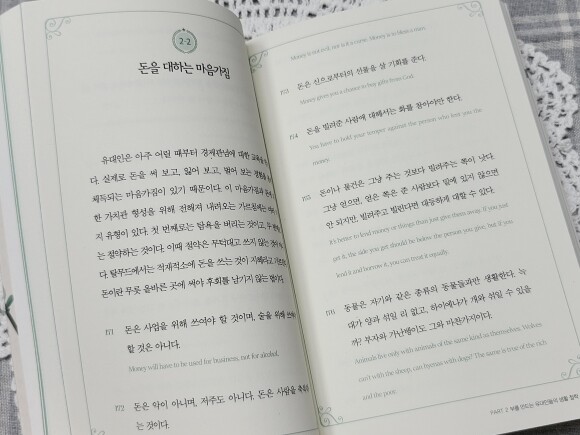 2-2
돈을 대하는 마음가짐
유대인은 아주 어릴 때부터 경제관념에 대한
다. 실제로 돈을 써 보고, 잃어 보고, 벌어 보는
체득되는 마음가짐이 있기 때문이다. 이 마음가짐과
한 가치관 형성을 위해 전해져 내려오는 가르침에는
지 유형이 있다. 첫 번째로는 탐욕을 버리는 것이고,
는 절약하는 것이다. 이때 절약은 무턱대고 쓰지 않는 것이
다. 탈무드에서는 적재적소에 돈을 쓰는 것이 지혜라고
돈이란 무릇 올바른 곳에 써야 후회를 남기지 않는 법이다.
171 돈은 사업을 위해 쓰여야 할 것이며, 술을 위해 쓰여야
할 것은 아니다.
Money will have to be used for business, not for alcohol.
172 돈은 악이 아니며, 저주도 아니다. 돈은 사람을
는 것이다.
Money is not evil, nor is it a curse. Money is to bless a man.
173 돈은 신으로부터의 선물을 살 기회를 준다.
Money gives you a chance to buy gifts from God.
174 돈을 빌려준 사람에 대해서는 화를 참아야만 한다.
You have to hold your temper against the person who lent you the
money.
175 돈이나 물건은 그냥 주는 것보다 빌려주는 쪽이 낫다.
그냥 얻으면, 얻은 쪽은 준 사람보다 밑에 있지 않으면
안 되지만, 빌려주고 빌린다면 대등하게 대할 수 있다.
It's better to lend money or things than just give them away. If you just
get it, the side you get should be below the person you give, but if you
lend it and borrow it, you can treat it equally.
176 동물은 자기와 같은 종류의 동물들과만 생활한다. 늑
대가 양과 섞일 리 없고, 하이에나가 개와 섞일 수 있을
까? 부자와 가난뱅이도 그와 마찬가지이다.
Animals live only with animals of the same kind as themselves. Wolves
can't with the sheep, can hyenas with dogs? The same is true of the rich
and the poor.
PART 2 부를 만드는 유대인들의 생활 철학